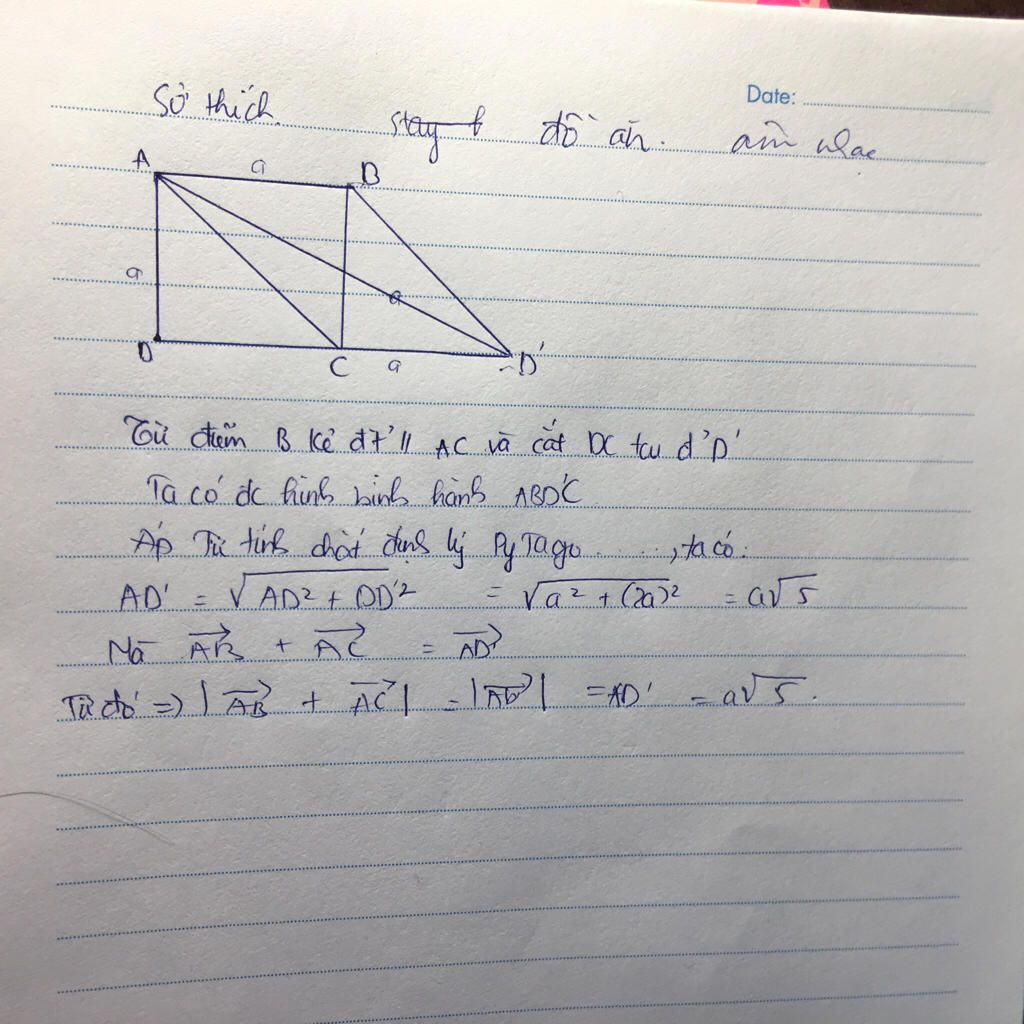 Date:
Sở thích. stay đồ ăn. âm nhạc
A a B
a a
D C a D'
Từ điểm B kẻ đt' // AC và cắt DC tại đ' D'
Ta có đc hình bình hành ABD'C
Áp Từ tính chất định lý PyTago ......, ta có:
AD' = √AD² + DD'² = √a² + (2a)² = a√5
Mà AB→ + AC→ = AD'→
Từ đó => |AB→ + AC→| = |AD'→| = AD' = a√5.